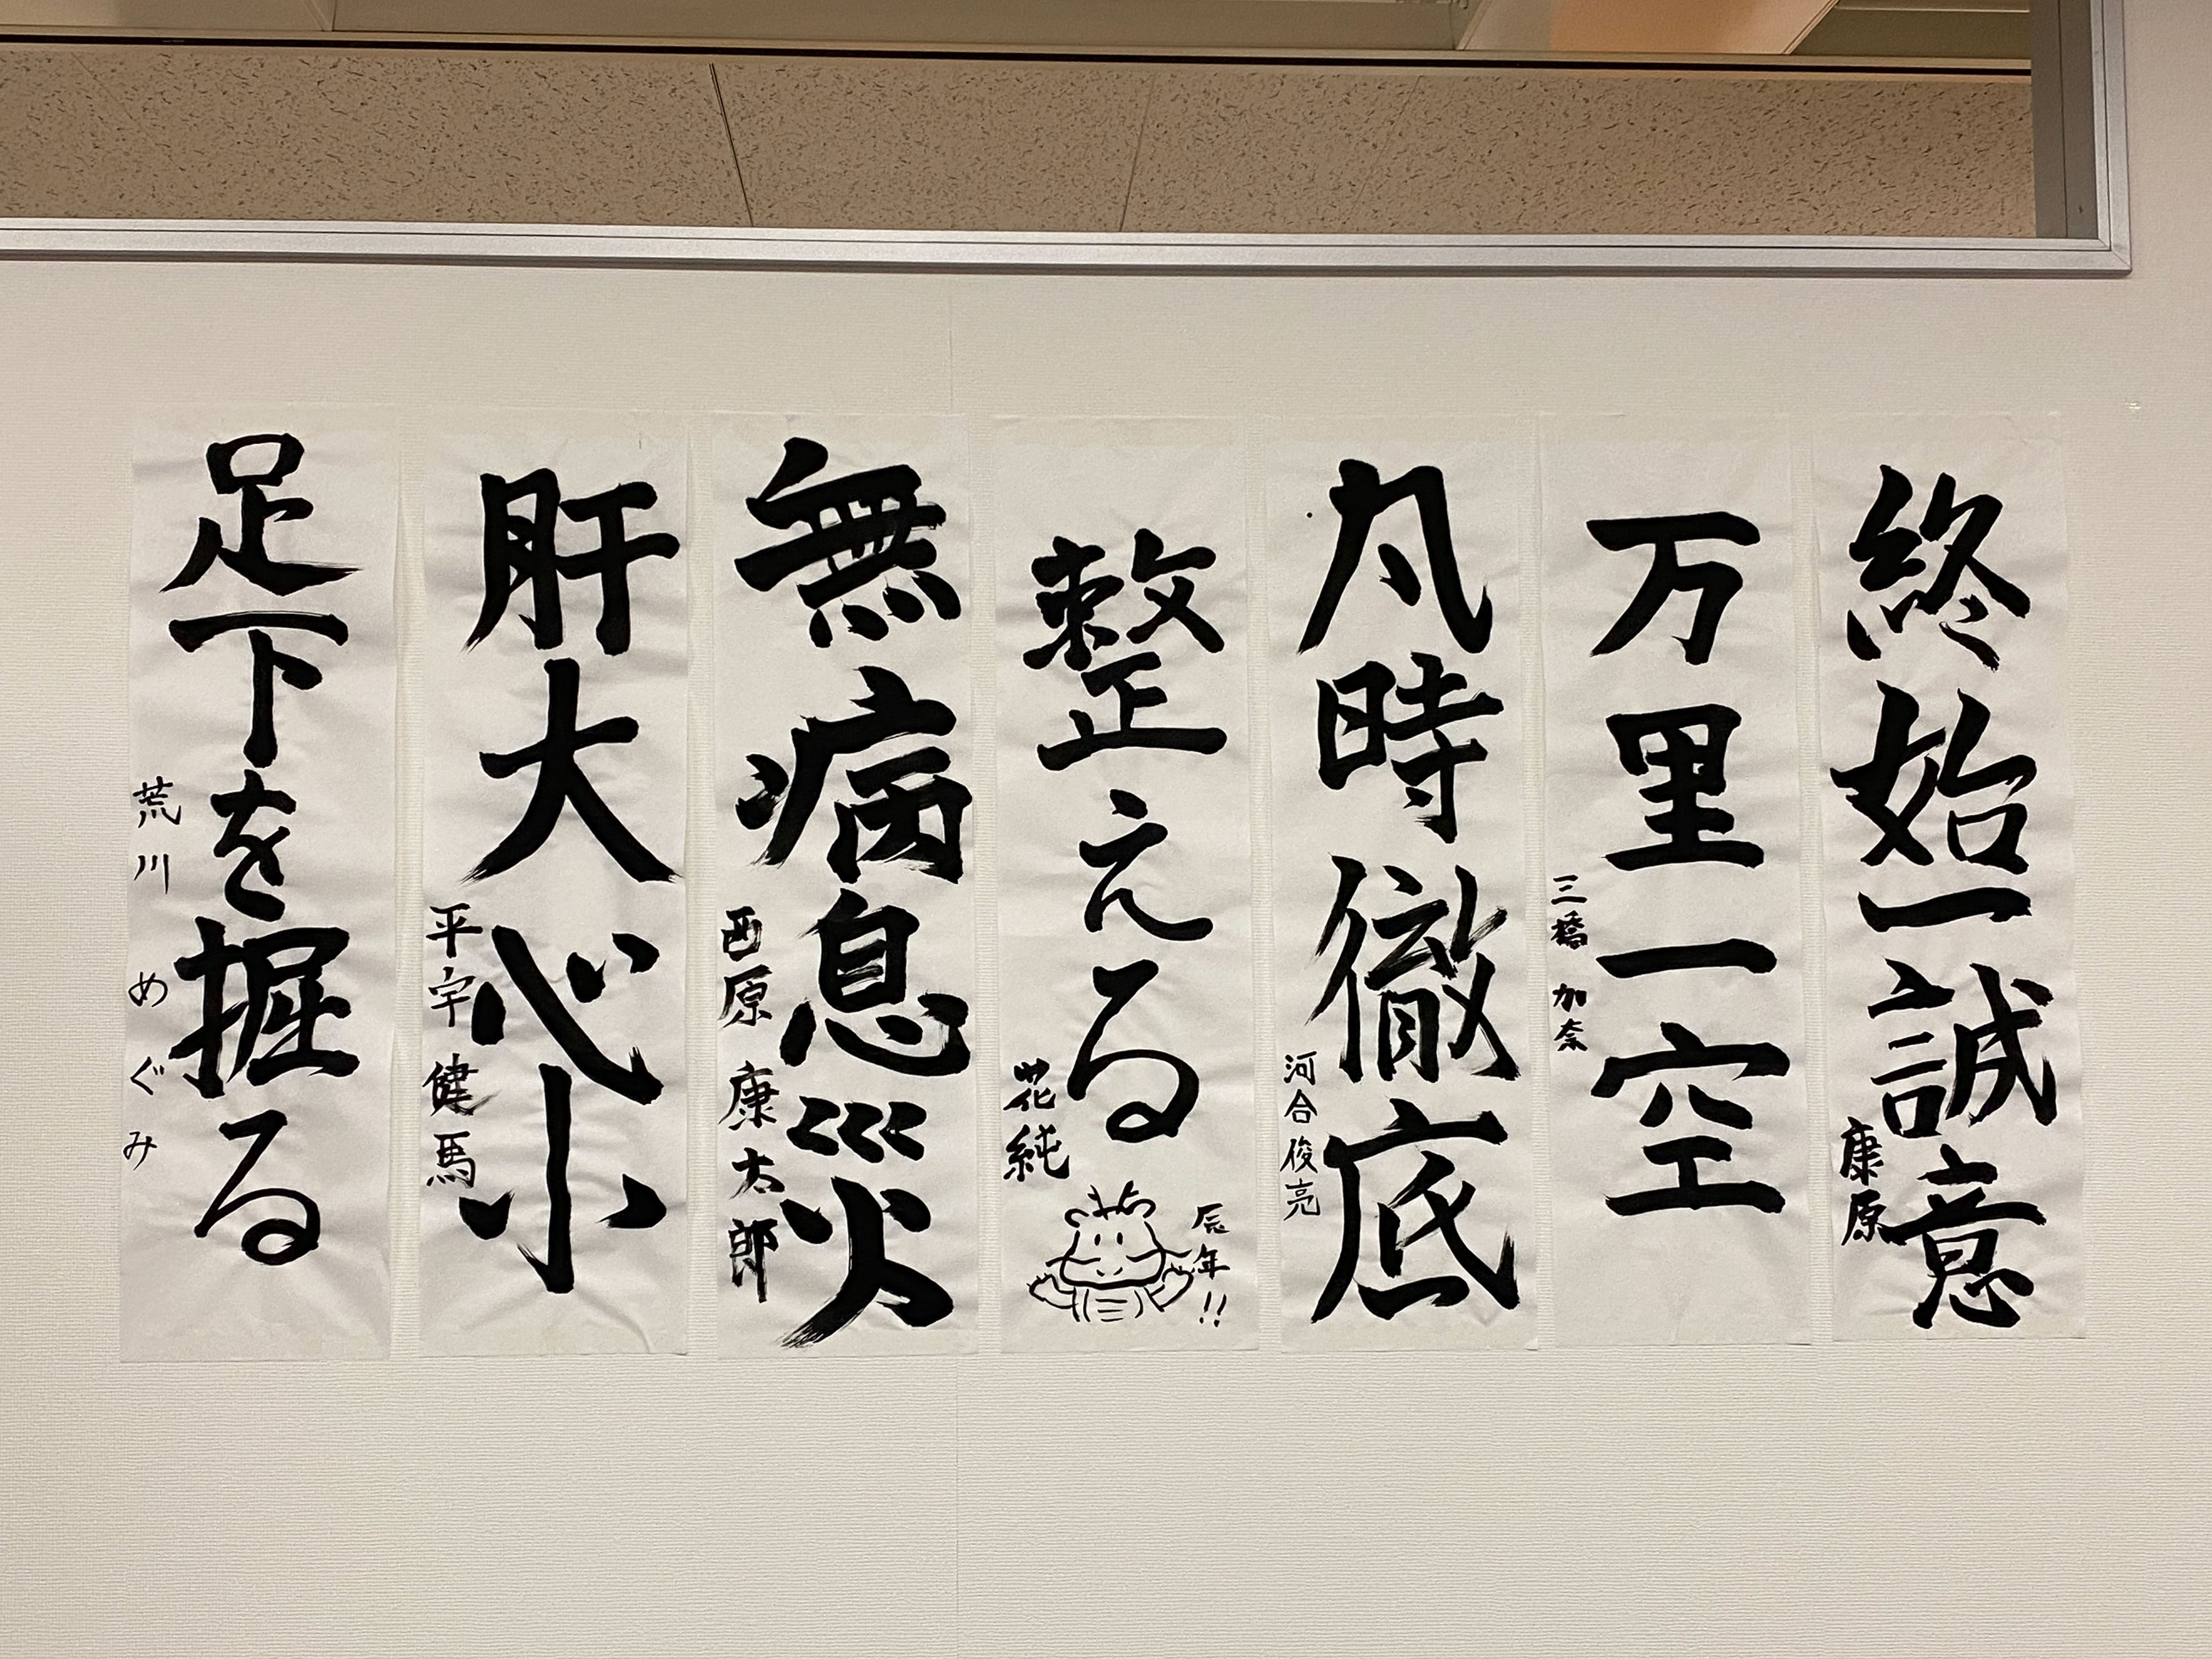 終始一誠意
康原
万里一空
三橋 加奈
凡時徹底
河合俊亮
整える
花純
辰年!!
無病息災
西原 康太郎
肝大心小
平宇 健馬
足下を掘る
荒川 めぐみ